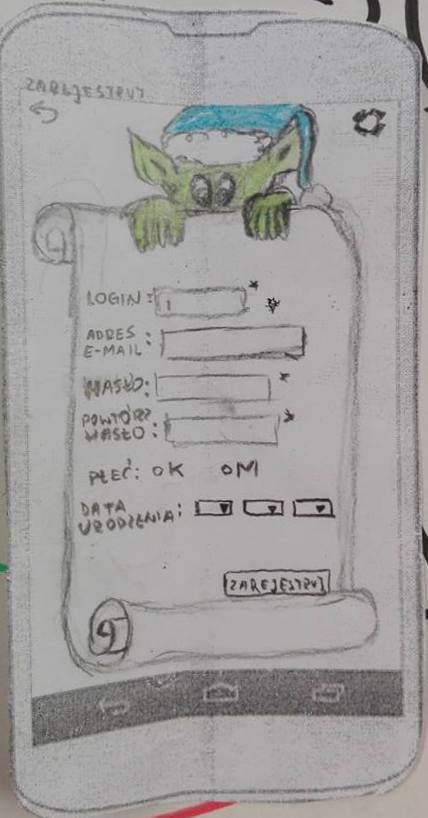 ZAREJESTRUJ
LOGIN: *
ADRES
E-MAIL:
HASŁO: *
POWTÓRZ
HASŁO: *
PŁEĆ: OK OM
DATA
URODZENIA:
ZAREJESTRUJ